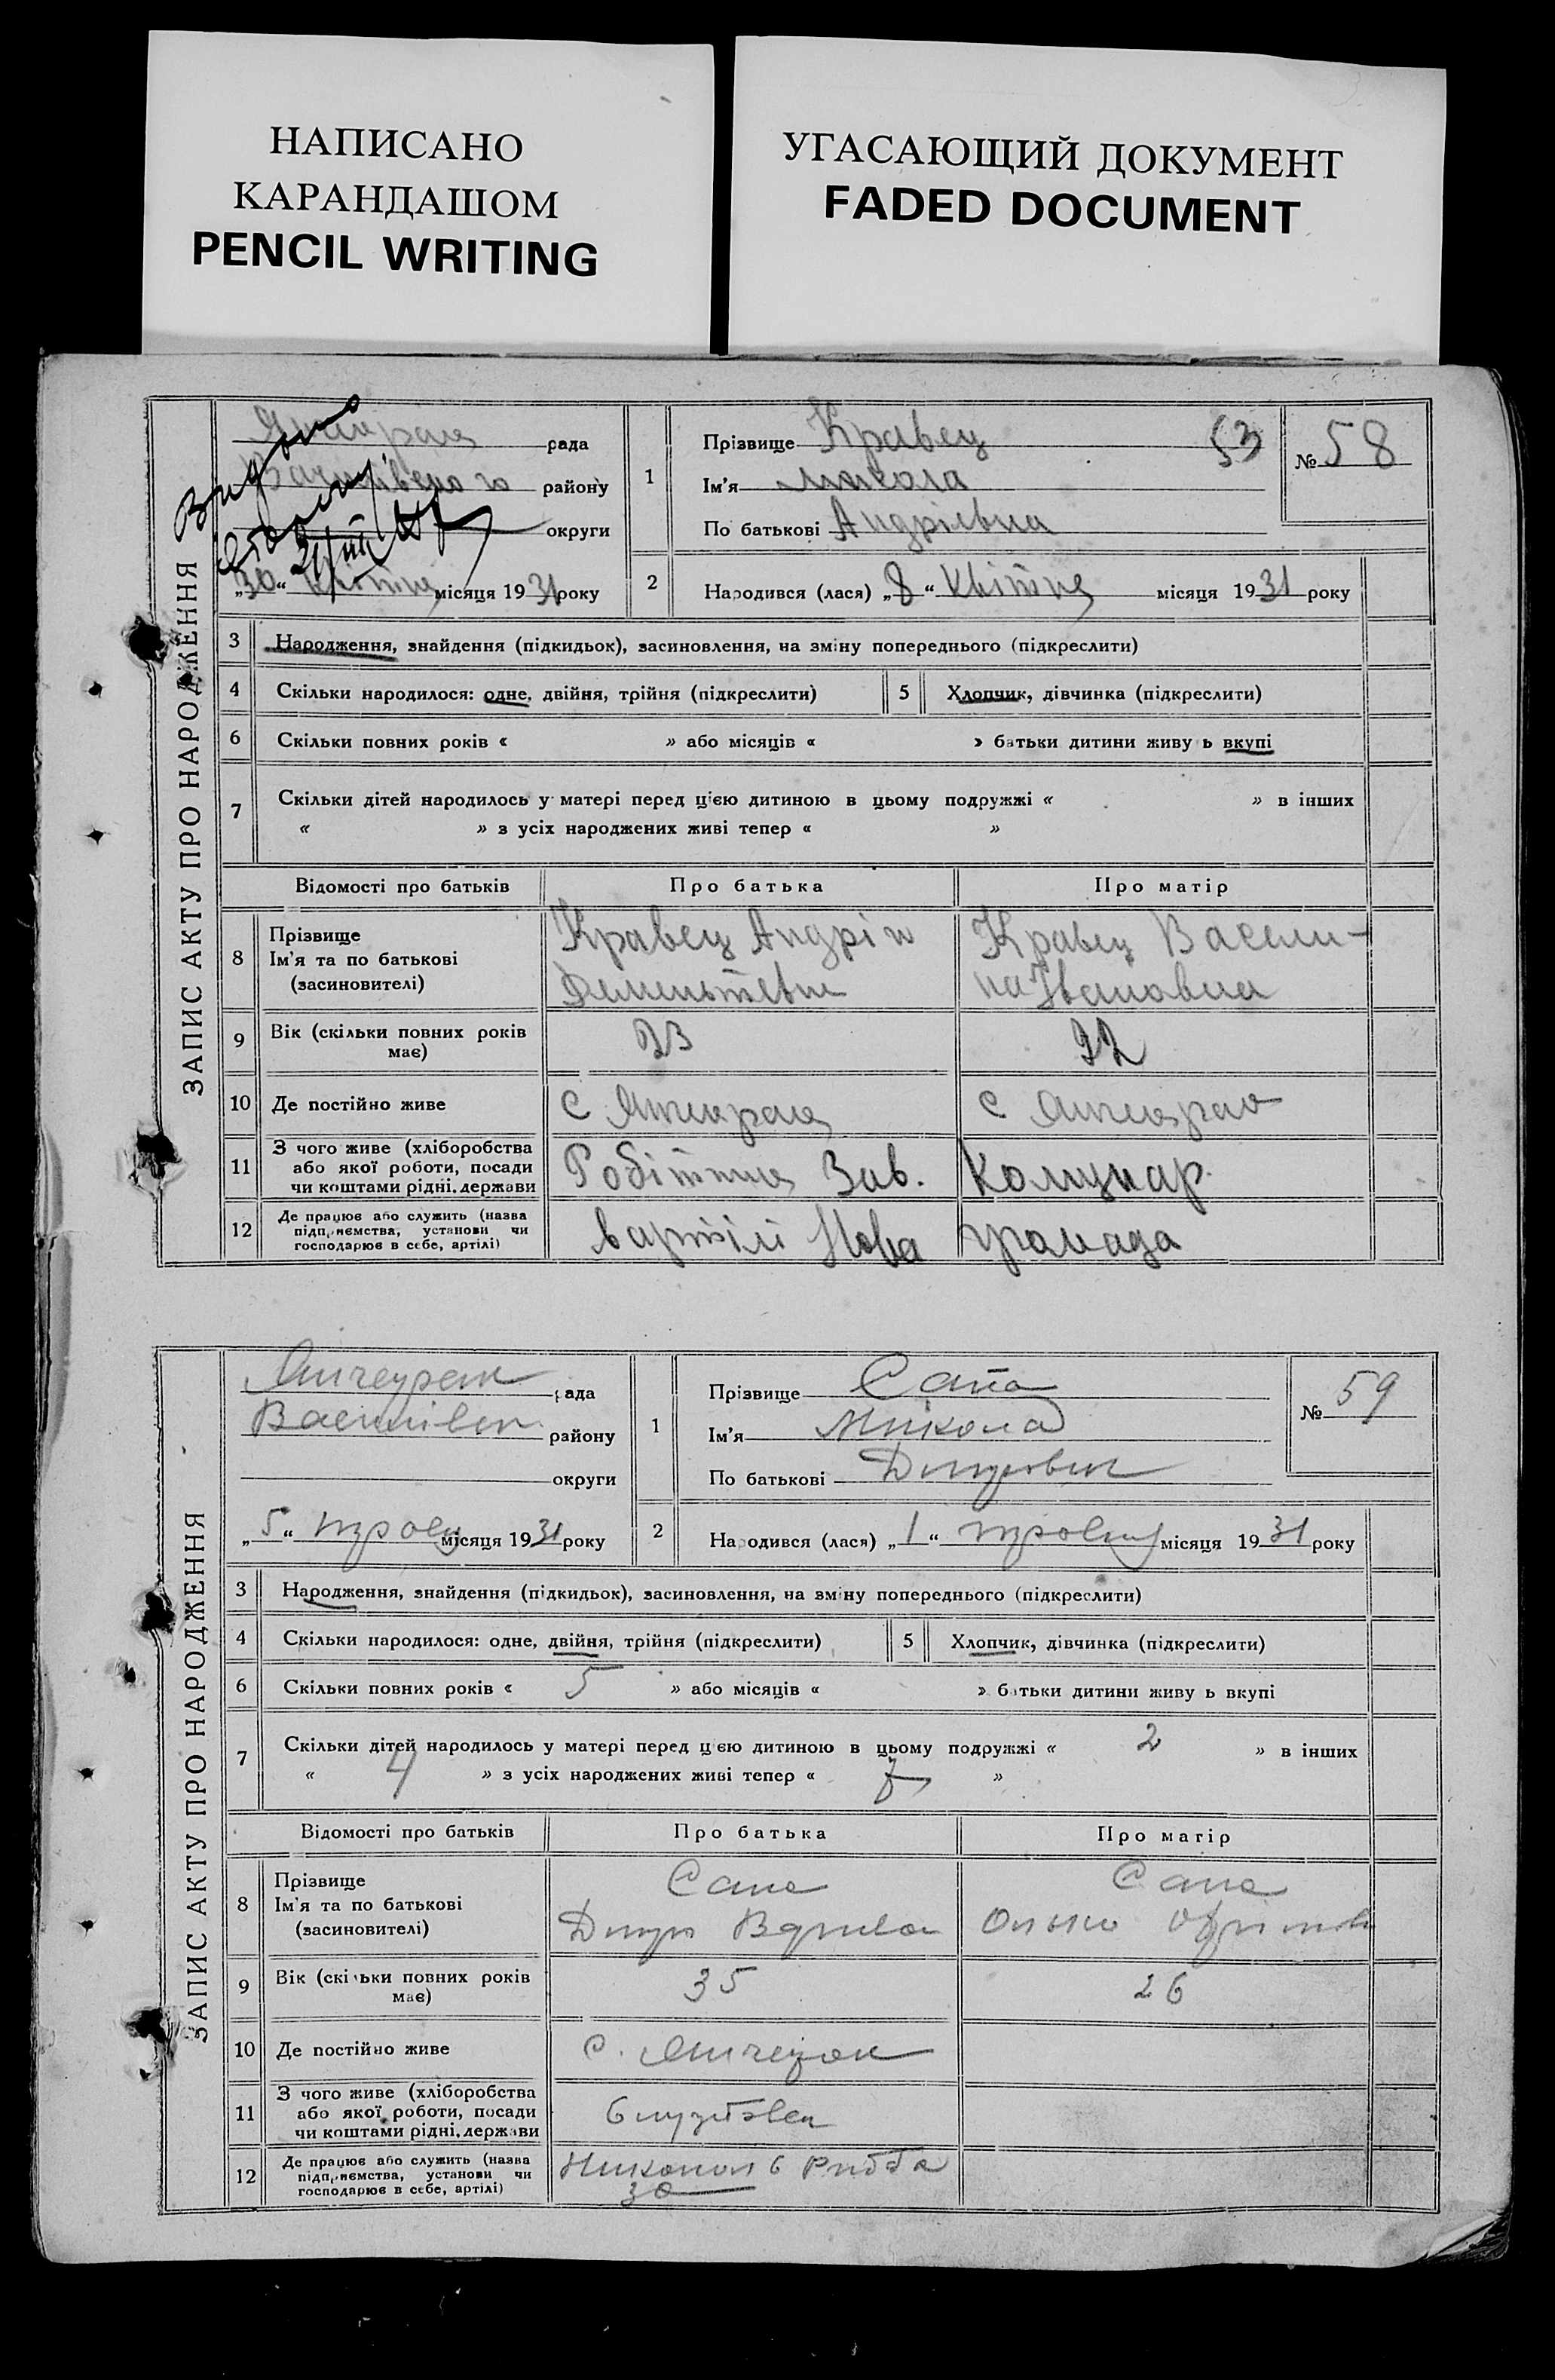 НАПИСАНО
КАРАНДАШОМ
PENCIL WRITING
УГАСАЮЩИЙ ДОКУМЕНТ
FADED DOCUMENT
ЗАПИС АКТУ ПРО НАРОДЖЕННЯ
Видано
рада
району
округи
„30“ квітня місяця 1931 року
1
Прізвище Кравец 53
Ім'я Микола
По батькові Андрієвич
№ 58
2
Народився (лася) „8“ Квітня місяця 1931 року
3 Народження, знайдення (підкидьок), засиновлення, на зміну попереднього (підкреслити)
4 Скільки народилося: одне, двійня, трійня (підкреслити) 5 Хлопчик, дівчинка (підкреслити)
6 Скільки повних років « » або місяців « » батьки дитини живу ь вкупі
7 Скільки дітей народилось у матері перед цією дитиною в цьому подружжі « » в інших
« » з усіх народжених живі тепер « »
Відомості про батьків Про батька Про матір
8 Прізвище
Ім'я та по батькові
(засиновителі)
Кравец Андрій
Дементєвич
Кравец Васели-
на Івановна
9 Вік (скільки повних років
має)
33
32
10 Де постійно живе
с
с
11 З чого живе (хліборобства
або якої роботи, посади
чи коштами рідні, держави
Робітник Зав. Комунар.
12 Де працює або служить (назва
підприємства, установи чи
господарює в себе, артілі)
вартілі Нова громада
ЗАПИС АКТУ ПРО НАРОДЖЕННЯ
рада
району
округи
„5“ травня місяця 1931 року
1
Прізвище Сапа
Ім'я Микола
По батькові
№ 59
2
Народився (лася) „1“ травня місяця 1931 року
3 Народження, знайдення (підкидьок), засиновлення, на зміну попереднього (підкреслити)
4 Скільки народилося: одне, двійня, трійня (підкреслити) 5 Хлопчик, дівчинка (підкреслити)
6 Скільки повних років « 5 » або місяців « » батьки дитини живу ь вкупі
7 Скільки дітей народилось у матері перед цією дитиною в цьому подружжі « 2 » в інших
« 4 » з усіх народжених живі тепер « »
Відомості про батьків Про батька Про матір
8 Прізвище
Ім'я та по батькові
(засиновителі)
Сапа
Сапа
9 Вік (скільки повних років
має)
35
26
10 Де постійно живе
с.
11 З чого живе (хліборобства
або якої роботи, посади
чи коштами рідні, держави
12 Де працює або служить (назва
підприємства, установи чи
господарює в себе, артілі)